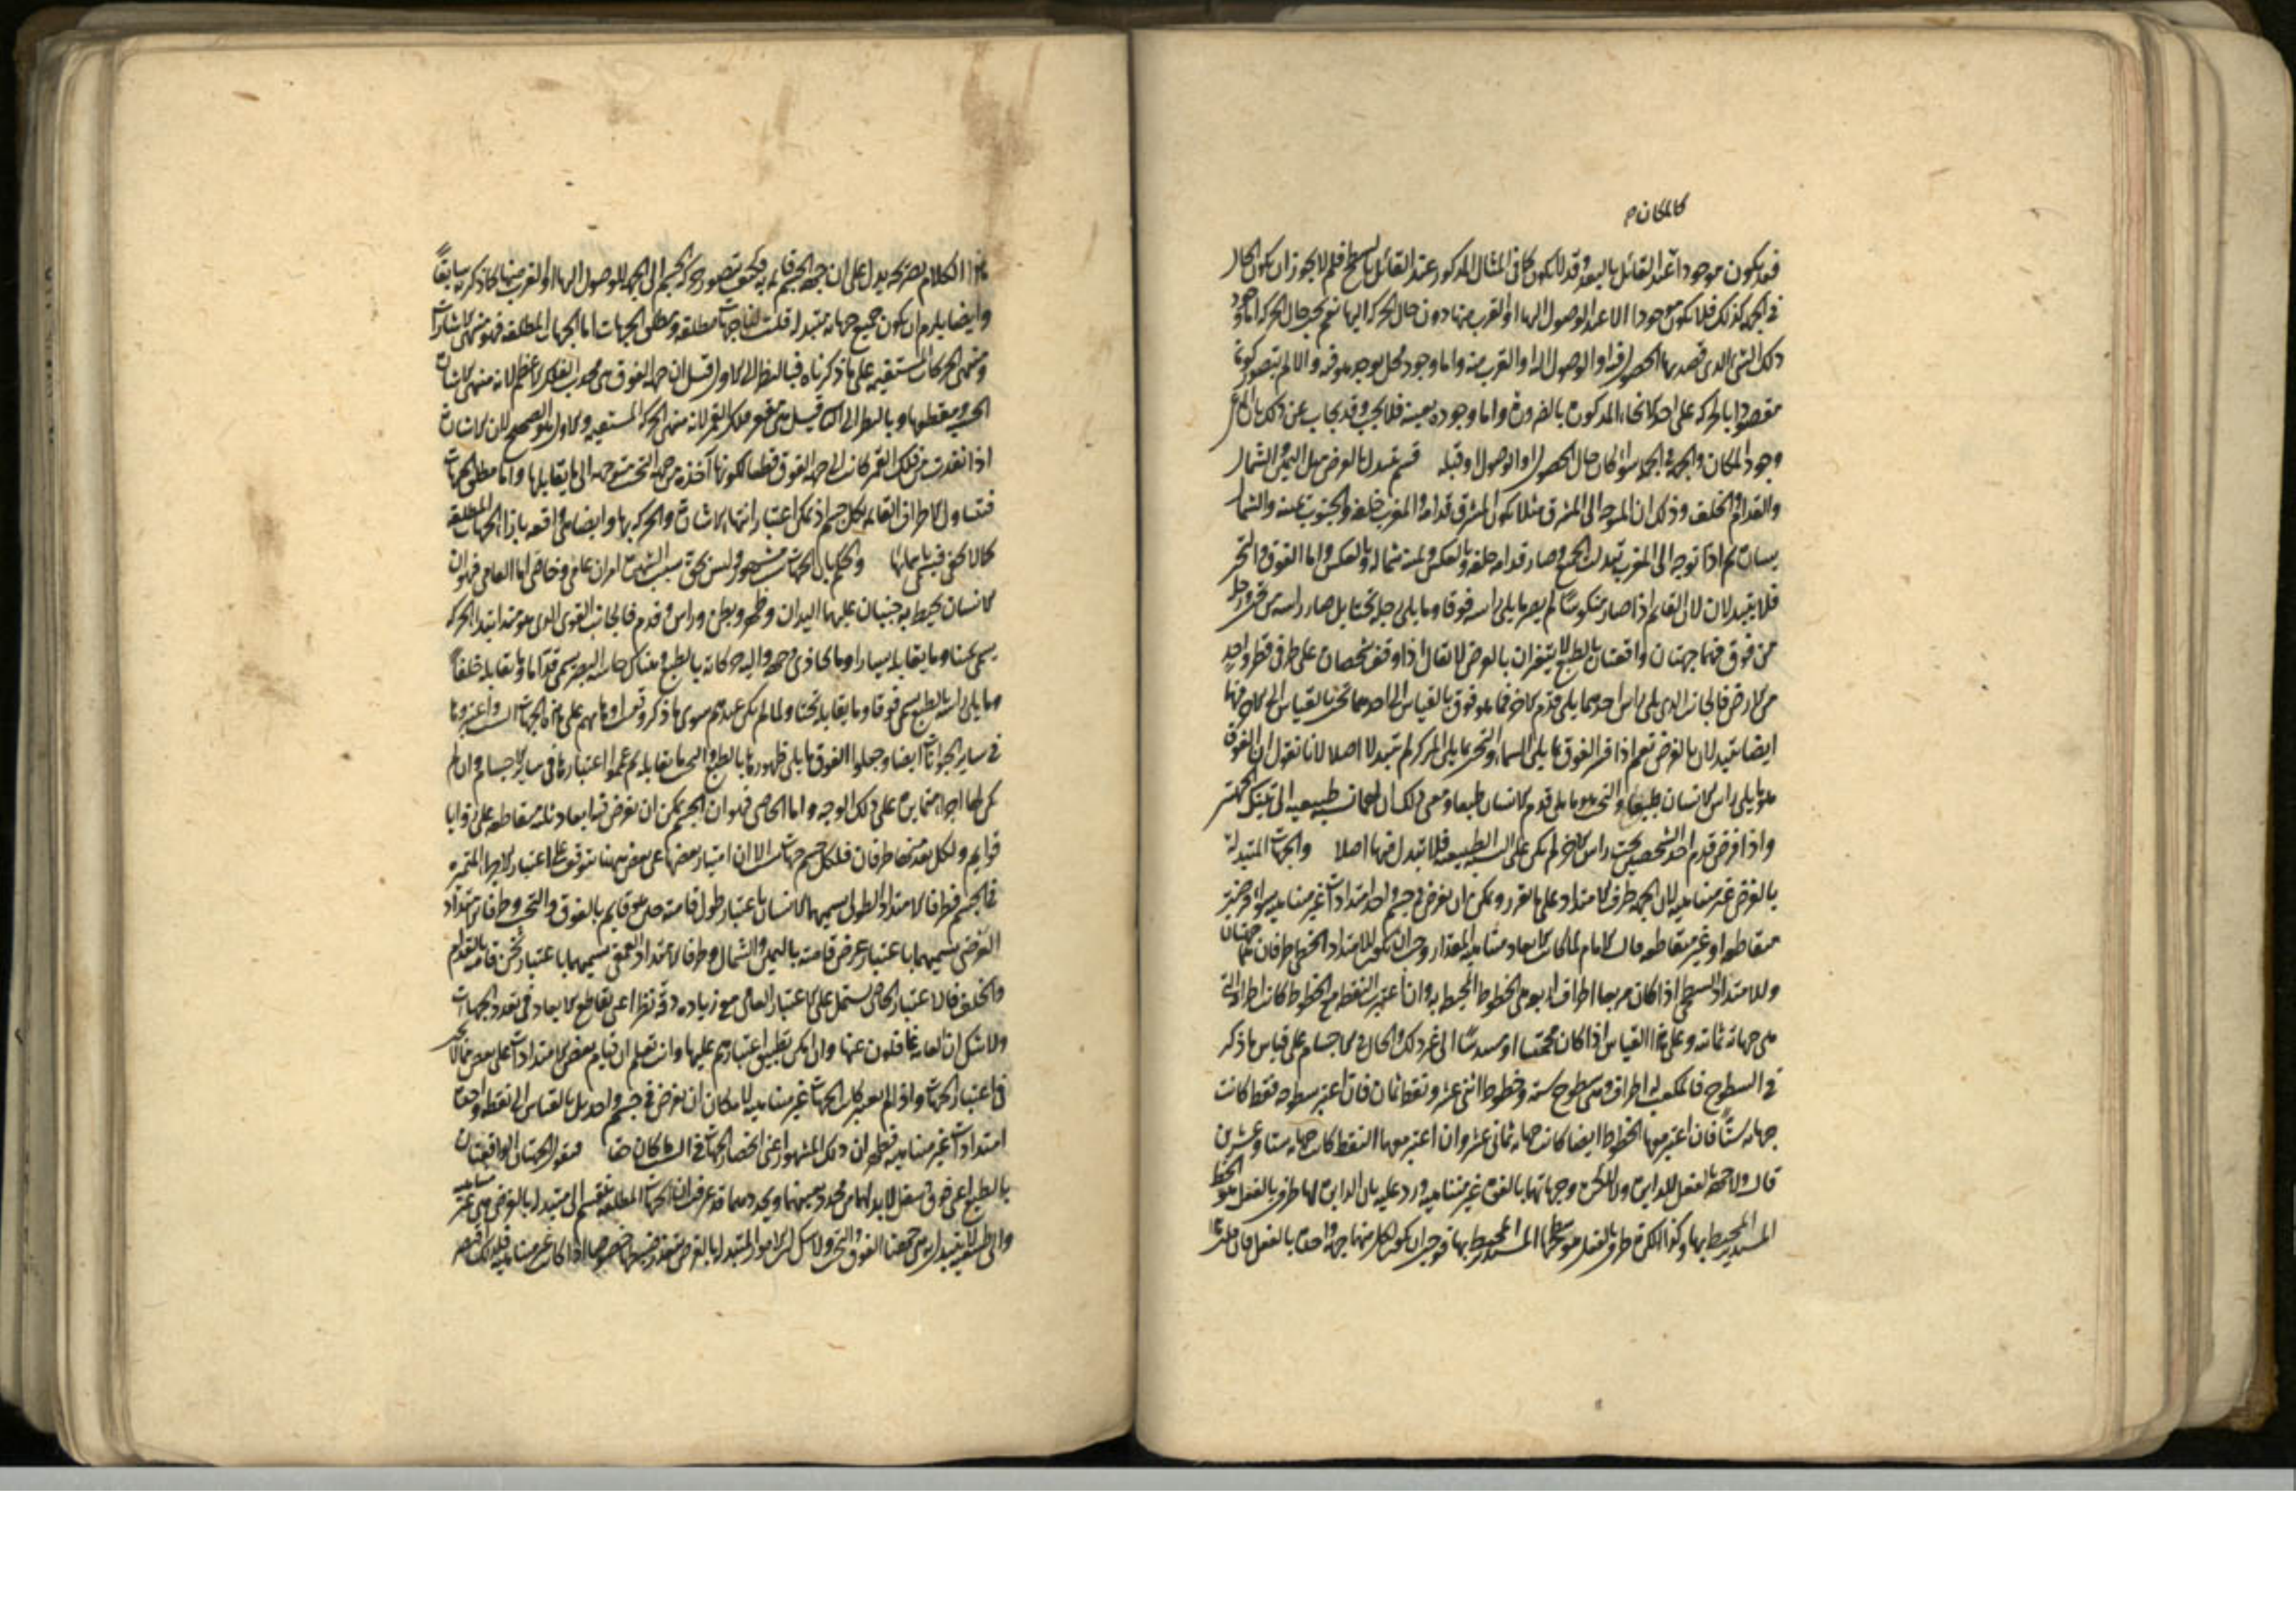 كالمكان م
فقد يكون موجودا عند القائل بالبعد وقد لا يكون كما في المثال المذكور عند القائل بالسطح فلم لا يجوز ان يكون الحال
في الجهة كذلك فلا يكون موجودا الا عند الوصول اليها او القرب منها دون حال الحركة اليها نعم يجب حال الحركة اما وجود
ذلك الشئ الذي قصد بها الحصول فيه او الوصول اليه او القرب منه واما وجود محل يوجد هو فيه والا لم يتصور كونها
مقصودا بالحركة على احد الانحاء المذكورة بالضرورة واما وجوده بعينه فلا يجب وقد يجاب عن ذلك بان
وجود المكان والجهة في الجهة سواء كان حال الحصول او الوصول او قبله قسم يتبدل بالعرض مثل اليمين والشمال
والقدام والخلف وذلك ان المتوجه الى المشرق مثلا يكون المشرق قدامه والمغرب خلفه والجنوب يمينه والشمال
يساره ثم اذا توجه الى المغرب تبدل الجميع وصار قدامه خلفه وبالعكس ويمينه شماله وبالعكس واما الفوق والتحت
فلا يتبدلان لان القائم اذا صار منكوسا لم يصر ما يلي راسه فوقا وما يلي رجله تحتا بل صار راسه من تحت ورجله
من فوق فهما جهتان واقعتان بالطبع لا يتغيران بالعرض لا يقال اذا وقف شخصان على طرفي قطر واحد
من الارض فالجانب الذي يلي راس احدهما يلي قدم الاخر فما هو فوق بالقياس الى احدهما تحت بالقياس الى الاخر فهما
ايضا يتبدلان بالعرض نعم اذا فسر الفوق بما يلي السماء والتحت بما يلي المركز لم يتبدلا اصلا لانا نقول ان الفوق
هو ما يلي راس الانسان طبعا والتحت هو ما يلي قدم الانسان طبعا ومعنى ذلك ان لهما نسبة طبيعية الى تينك الجهتين
واذا فرض قدم احد الشخصين تحت راس الاخر لم يكن على النسبة الطبيعية فلا تبدل فيهما اصلا والجهات المتبدلة
بالفرض غير متناهية لان الجهة طرف الامتداد على ما تقرر ويمكن ان يفرض في جسم واحد امتدادات غير متناهية سواء فرضت
متقاطعة او غير متقاطعة قال الامام لما كانت الابعاد متناهية المقدار وجب ان يكون للامتداد الخطي طرفان هما جهتان
وللامتداد السطحي اذا كان مربعا اطراف اربعة هي الخطوط المحيطة به وان اعتبرت النقط مع الخطوط كانت اطرافه التي
هي جهاته ثمانية وعلى هذا القياس اذا كان مخمسا او مسدسا الى غير ذلك والحال في الاجسام على قياس ما ذكر
في السطوح فالمكعب له اطراف وهي سطوح ستة وخطوط اثنى عشر ونقط ثمان فان اعتبر سطوحه فقط كانت
جهاته ستا فان اعتبر معها الخطوط ايضا كانت جهاته ثماني عشر وان اعتبر معها النقط كانت جهاته ستا وعشرين
قال ولا جهة بالفعل للدايرة ولا للكرة وجهاتهما بالقوة غير متناهية ورد عليه بان الدايرة لها طرف بالفعل هو الخط
المستدير المحيط بها وكذا الكرة طرف بالفعل هو سطحها المستدير المحيط بها فوجب ان يكون لكل منهما جهة واحدة بالفعل فان
هذا الكلام بصريحه يدل على ان جهة الجسم قائمة به فكيف تصور حركة الجسم الى الجهة للوصول اليها او القرب منها كما ذكره سابقا
وايضا يلزم ان يكون جميع جهاته متبدلة قلت هنا جهات مطلقة ومطلق الجهات اما الجهات المطلقة فهو منتهى الاشارات
ومنتهى الحركات المستقيمة على ما ذكرناه فبالنظر الى الاول قيل ان جهة الفوق هي محدب الفلك الاعظم لانه منتهى الاشارة
الحسية ومقطعها وبالنظر الى الثاني قيل هي مقعر فلك القمر لانه منتهى الحركة المستقيمة والاول هو الصحيح لان الاشارة
اذا نفذت من فلك القمر كانت الى جهة الفوق قطعا لكونها آخذة من جهة التحت متوجهة الى ما يقابلها واما مطلق الجهات
فتتناول الاطراف القائمة بكل جسم اذ يمكن اعتبار انتهاء الاشارة والحركة بها وايضا هي واقعة بازاء الجهات المطلقة
كما لا يخفى فيسمى باسمائها والحكم بان الجهات ست مشهور وليس بحق سبب الشهرة امران عامي وخاصي اما العامي فهو ان
الانسان يحيط به جنبان عليهما اليدان وظهر وبطن وراس وقدم فالجانب القوي الذي هو مبتدأ ابتداء الحركة
يسمى يمينا وما يقابله يسارا وما يحاذي وجهه واليه حركاته بالطبع وهناك حاسة البصر يسمى قداما وما يقابله خلفا
وما يلي راسه بالطبع يسمى فوقا وما يقابله تحتا ولما لم يكن عندهم سوى ما ذكر وقعت اوهامهم على هذه الجهات الست واعتبروها
في ساير الحيوانات ايضا وجعلوا الفوق ما يلي ظهورها بالطبع والتحت ما يقابله ثم عمموا اعتبارها في ساير الاجسام وان لم
يكن لها اجزاء متمايزة على ذلك الوجه واما الخاصي فهو ان الجسم يمكن ان يفرض فيه ابعاد ثلثة متقاطعة على زوايا
قوايم ولكل بعد منها طرفان فلكل جسم جهات ست الا ان امتياز بعضها عن بعض ههنا يتوقف على اعتبار الاجزاء المتميزة
في الجسم فطرفا الامتداد الطولي يسميهما الانسان باعتبار طول قامته حين هو قايم بالفوق والتحت وطرفا الامتداد
العرضي يسميهما باعتبار عرض قامته باليمين والشمال وطرفا الامتداد العمقي يسميهما باعتبار ثخن قامته بالقدام
والخلف فالاعتبار الخاصي يشتمل على الاعتبار العامي مع زيادة دقة نظر اعني تقاطع الابعاد في تعدد الجهات
ولا شك ان العامة غافلون عنها وان امكن تطبيق اعتبارهم عليها وانت تعلم ان قيام بعض الامتدادات على بعض مما لا يجب
في اعتبار الجهات واذا لم يعتبر كانت الجهات غير متناهية لامكان ان يفرض في جسم واحد بل بالقياس الى نقطة واحدة
امتدادات غير متناهية فظهر ان ذلك المشهور اعني انحصار الجهات في الست ما كان حقا فنقول الجهتان الواقعتان
بالطبع اعني فوق وسفل لا بد لهما من محدد يعينهما ويحددهما قد عرفت ان الجهات المطلقة تنقسم الى متبدلة بالفرض هي غير متناهية
والى طبيعية لا تتبدل اصلا هي جهتا الفوق والتحت ولا شك ان الامور المتبدلة بالفرض يتعذر ضبطها خصوصا اذا كانت غير متناهية فلذلك اقتصر